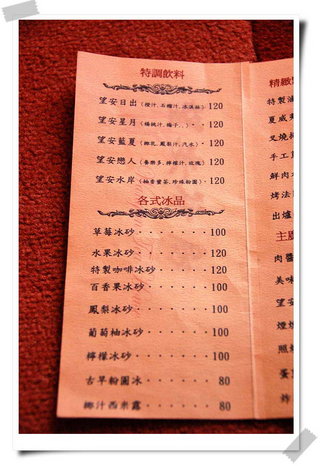 特調飲料
望安日出(橙汁,石榴汁,冰淇淋) 120
望安星月(楊桃汁,梅子..)... 120
望安藍夏(椰乳,鳳梨汁,汽水). 120
望安戀人(養樂多,檸檬汁,玫瑰) 120
望安水岸(柚香蜜茶,珍珠粉圓). 120
各式冰品
草莓冰砂・・・・・・・100
水果冰砂・・・・・・・120
特製咖啡冰砂・・・・・120
百香果冰砂・・・・・・100
鳳梨冰砂・・・・・・・100
葡萄柚冰砂・・・・・・100
檸檬冰砂・・・・・・・100
古早粉圓冰・・・・・・80
椰汁西米露・・・・・・80
精緻
特製
夏威
叉燒
手工
鮮肉
烤法
出爐
主
肉醬
美味
望安
煙燻
照
蛋
炸